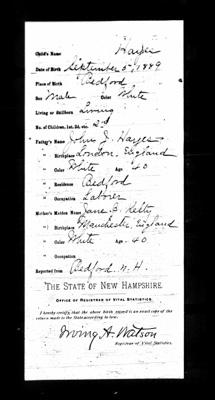 Child's Name Hayes
Date of Birth September 5, 1889
Place of Birth Bedford
Sex Male Color White
Living or Stillborn Living
No. of Children, 1st, 2d, etc. 2d
Father's Name John J. Hayes
" Birthplace London, England
" Color White Age 40
" Residence Bedford
" Occupation Laborer
Mother's Maiden Name Jane E. Kelty
" Birthplace Manchester, England
" Color White Age 40
" Occupation
Reported from Bedford N.H.
THE STATE OF NEW HAMPSHIRE.
OFFICE OF REGISTRAR OF VITAL STATISTICS.
I hereby certify, that the above birth record is an exact copy of the
return made to the State according to law.
Irving A. Watson
Registrar of Vital Statistics.